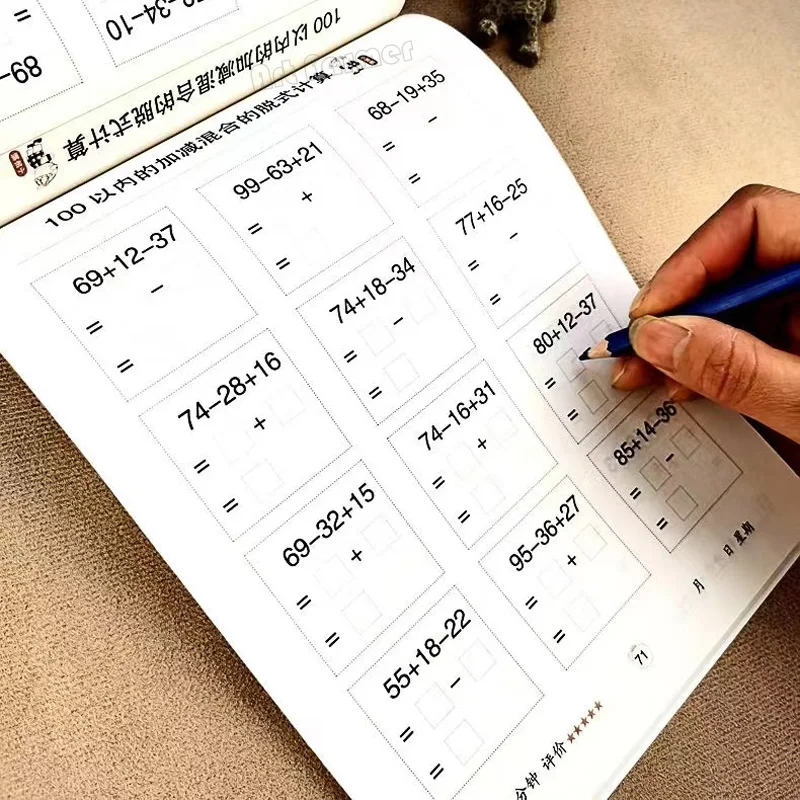 100以内的加减混合的脱式计算
100以内的加减混合的脱式计算
69+12−37
−
=
=
99−63+21
+
=
=
68−19+35
−
=
=
74−28+16
+
=
=
74+18−34
−
=
=
77+16−25
−
=
=
69−32+15
+
=
=
74−16+31
+
=
=
80+12−37
=
=
55+18−22
−
=
=
95−36+27
+
=
=
85+14−36
−
=
=
月 日 星期
71
分钟 评价 ★★★★★